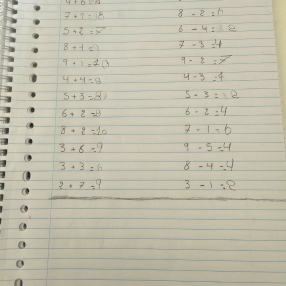 5+2=7 6-4=2
8+1= 7-3=4
9+1=10 9-2=7
4+4=8 4-3=1
5+3=8 5-3=2
6+2=8 6-2=4
8+2=10 7-1=6
3+6=9 9-5=4
3+3=6 8-4=4
2+7=9 3-1=2